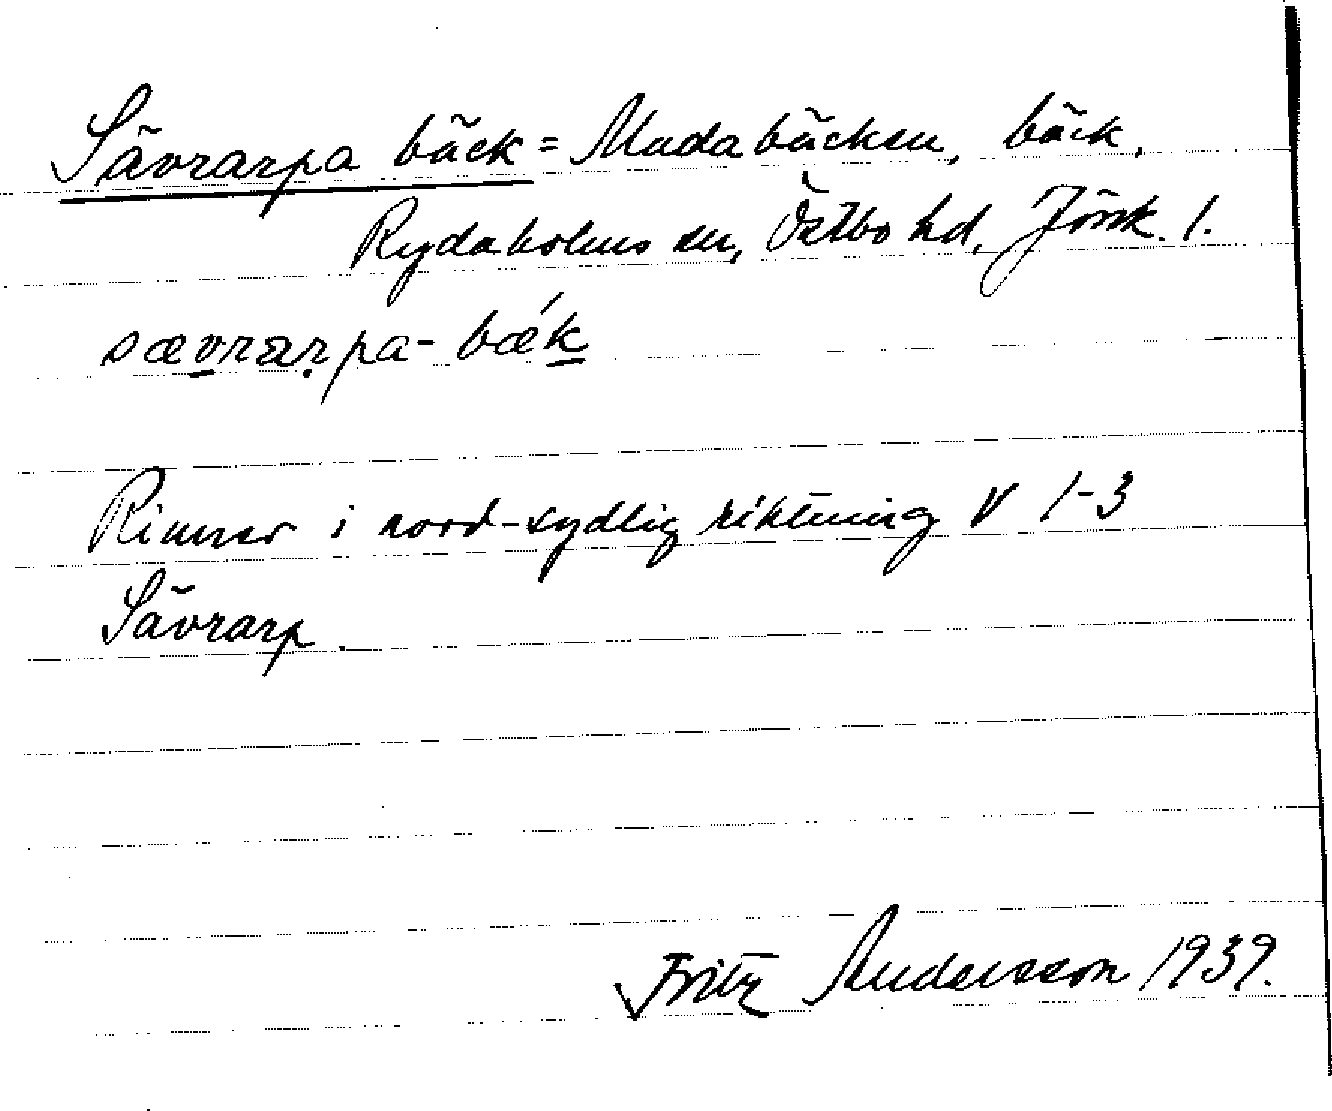 Sävrarpa bäck = Madabäcken, bäck,
Rydaholms sn, Östbo hd, Jönk. l.
sævrarpa-bæ´k
Rinner i nord-sydlig riktning V 1-3
Sävrarp.
Fritz Andersson 1939.